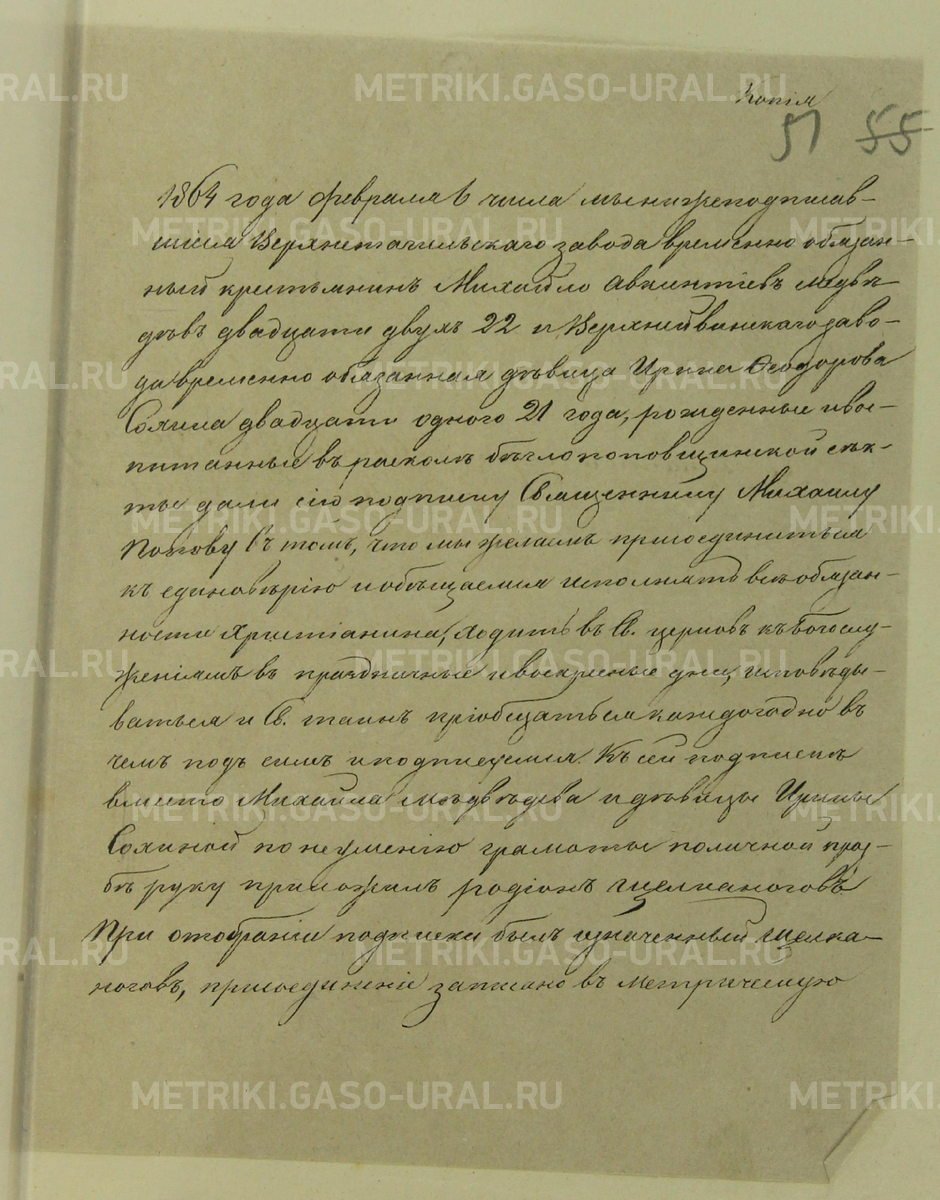 Копія
51 55
1864 года февраля 6 числа мы нижеподписав-
шіеся Верхнетагильскаго завода временно обязан-
ный крестьянинъ Михайло Авкинтіевъ Медвѣ-
дѣвъ двадцати двухъ 22 и Верхнейвинскаго заво-
да временно обязанная дѣвица Ирина Ѳеодорова
Сохина двадцати одного 21 года, рожденные и вос-
питанные въ расколѣ бѣглопоповщинской сек-
ты дали сію подписку Священнику Михаилу
Попову въ томъ, что мы желаемъ присоединиться
къ единовѣрію и обѣщаемся исполнять всѣ обязан-
ности христіанина, ходить въ Св. церковь къ Богослу-
женіямъ въ праздничные и воскресные дни, исповѣды-
ваться и Св. таинъ пріобщаться каждогодно въ
чемъ подъ симъ и подписуемся. Къ сей подпискѣ
вмѣсто Михайла Мѣдвѣдева и дѣвицы Ирины
Сохиной по неумѣнію грамоты по личной прозь-
бѣ руку приложилъ родіонъ Щелканоговъ
При отобраніи подписки былъ означенный Щелка-
ноговъ, присоединеніе записано въ метрическую
METRIKI.GASO-URAL.RU